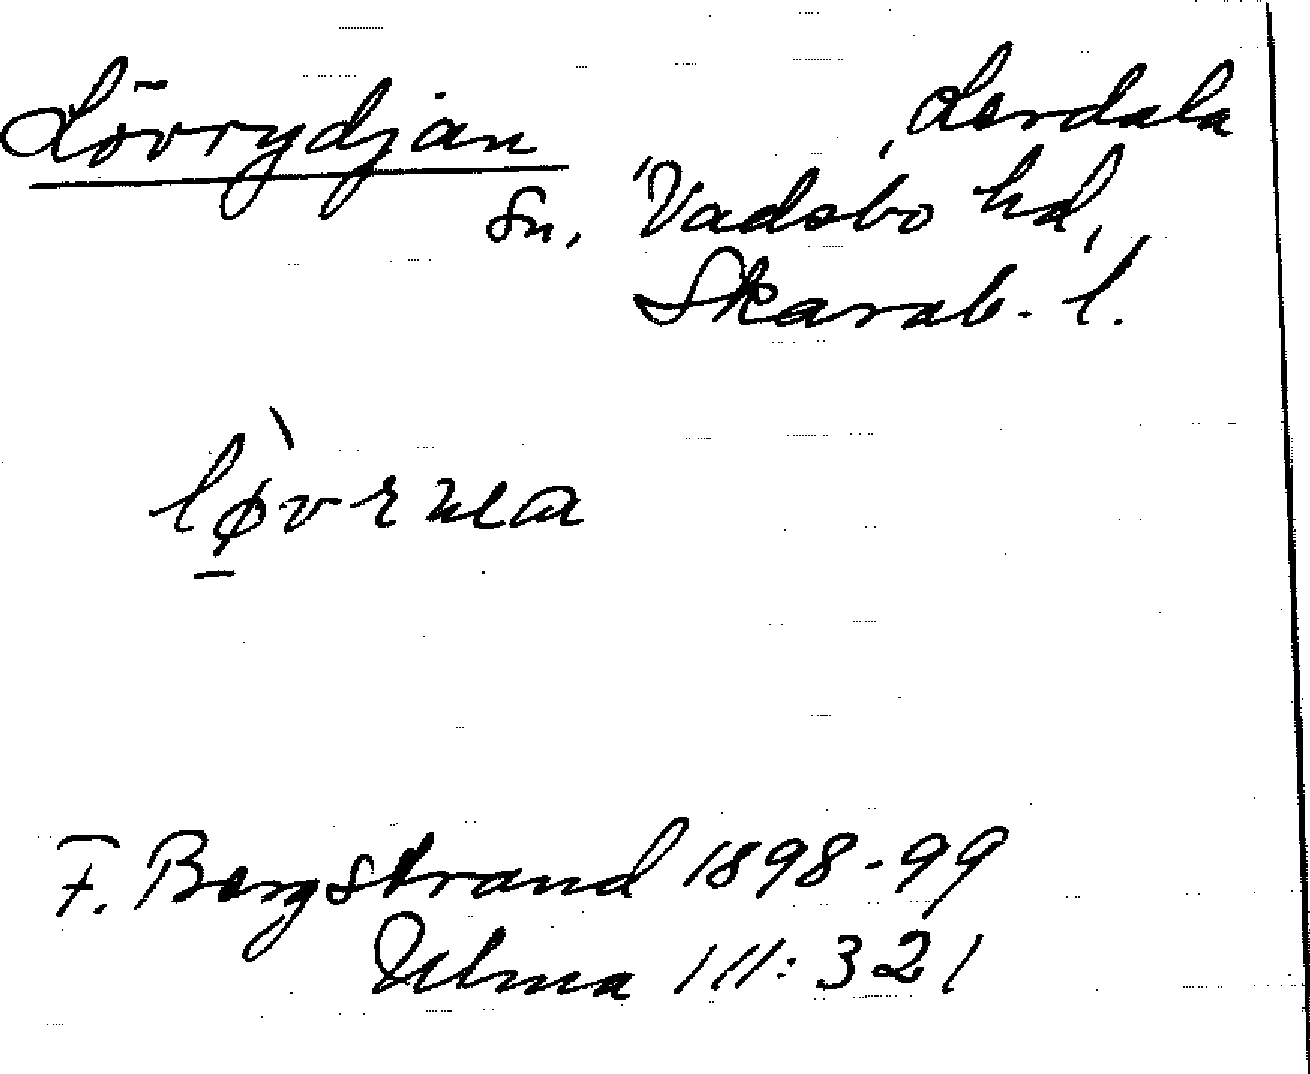 Lövrydjan
, Lerdala
Sn, Vadsbo hd,
Skarab. l.
lø̱̀vrııa
F. Bergstrand 1898-99
Ulma 111:321